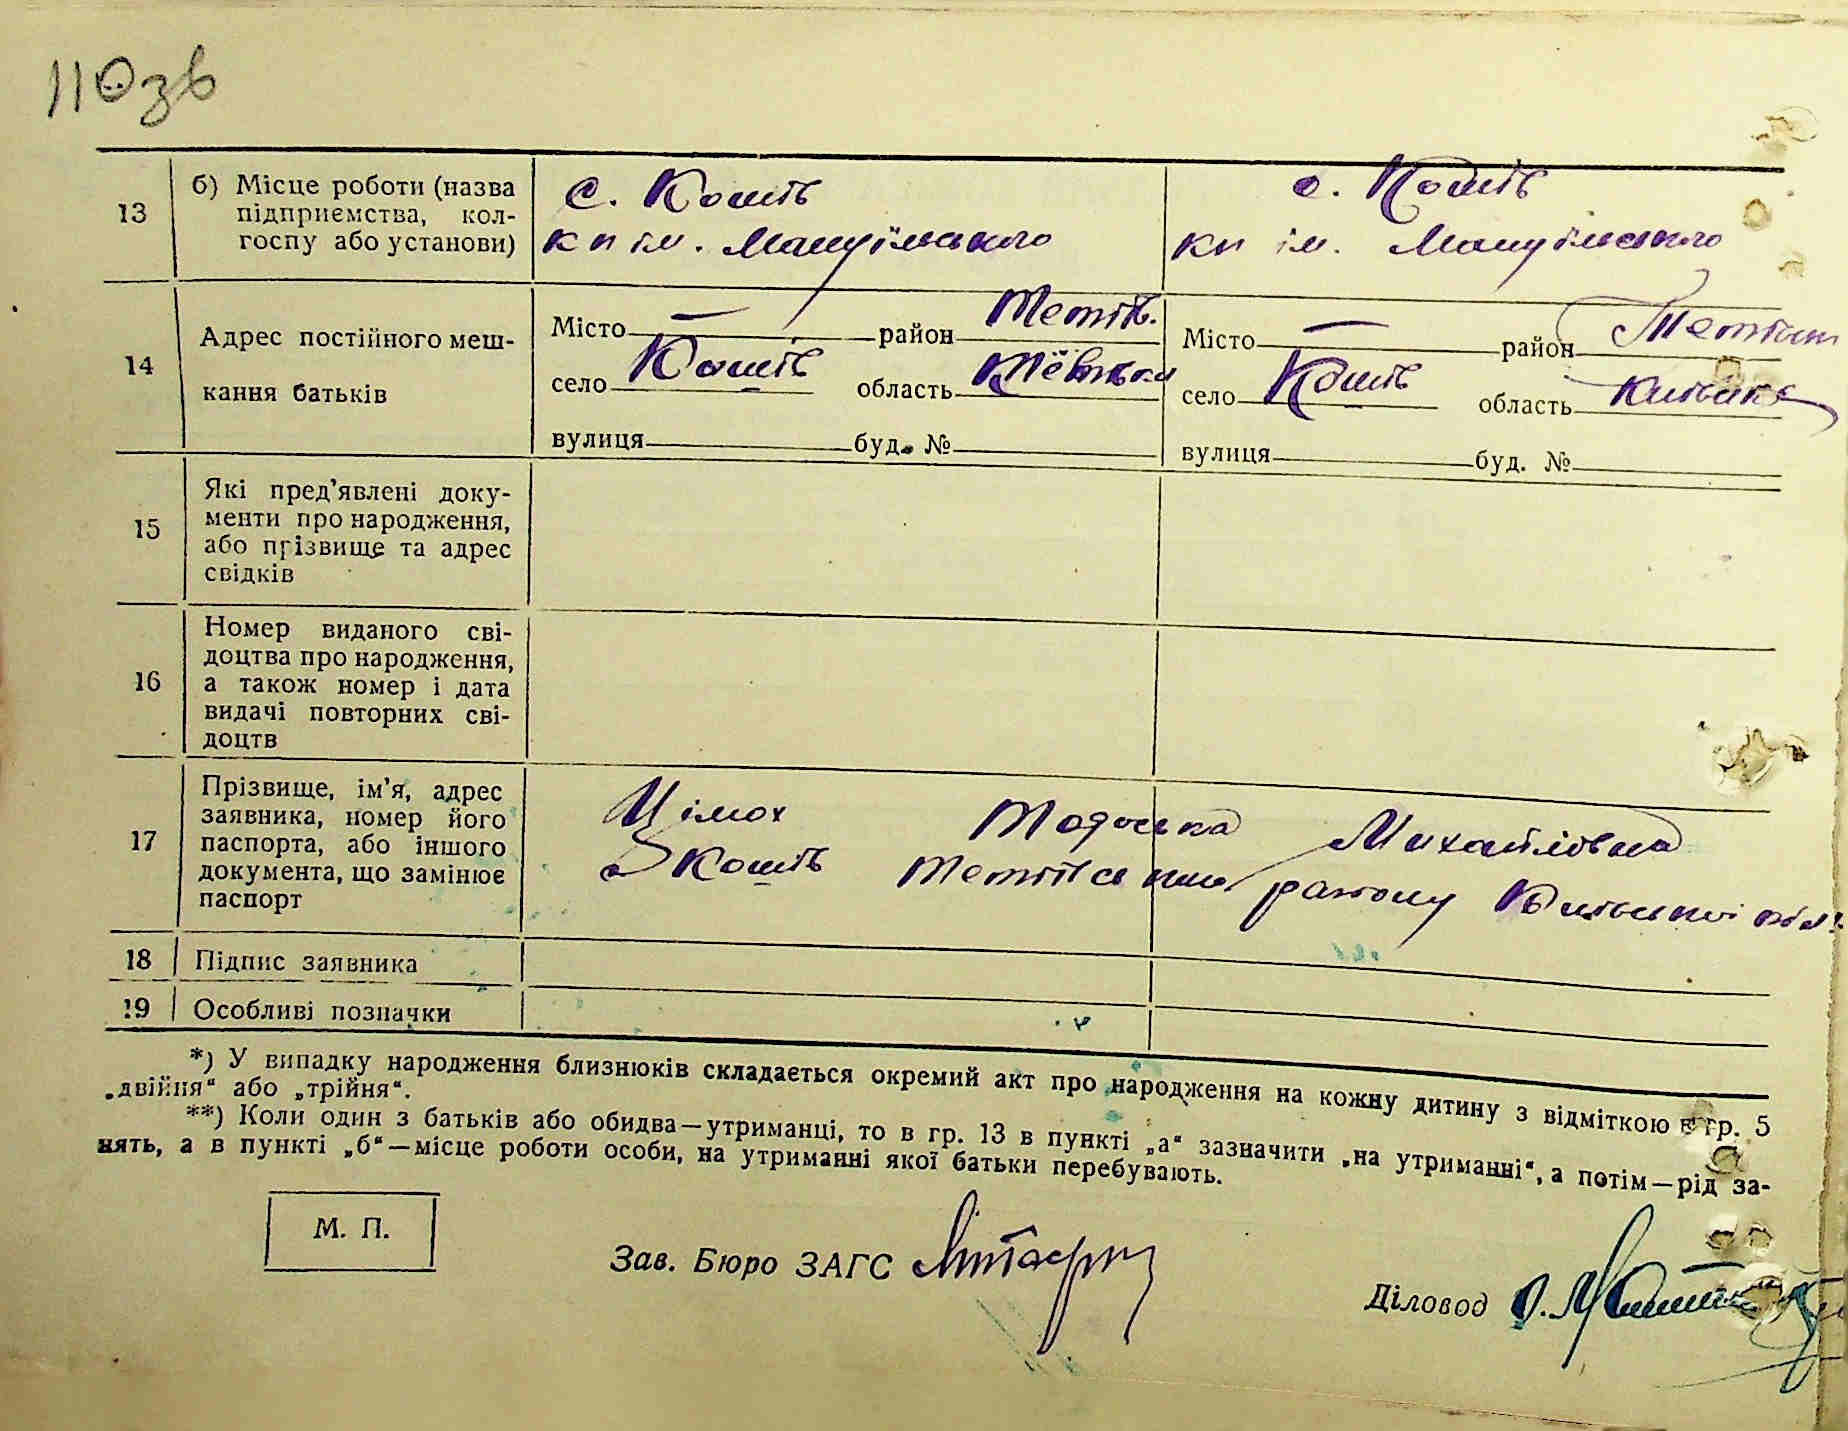 110 зв
13
б) Місце роботи (назва
підприємства, кол-
госпу або установи)
с. Кошів
кп ім. Мануїльського
с. Кошів
кп ім. Мануїльського
14
Адрес постійного меш-
кання батьків
Місто — район Тетіїв.
село Кошів область Київськ
вулиця буд. №
Місто — район Тетіївськ
село Кошів область Київська
вулиця буд. №
15
Які пред’явлені доку-
менти про народження,
або прізвище та адрес
свідків
16
Номер виданого сві-
доцтва про народження,
а також номер і дата
видачі повторних сві-
доцтв
17
Прізвище, ім’я, адрес
заявника, номер його
паспорта, або іншого
документа, що замінює
паспорт
Цімох Тодоська Михайлівна
с Кошів Тетіївського району Київської обл.
18
Підпис заявника
19
Особливі позначки
*) У випадку народження близнюків складається окремий акт про народження на кожну дитину з відміткою в гр. 5
„двійня“ або „трійня“.
**) Коли один з батьків або обидва—утриманці, то в гр. 13 в пункті „а“ зазначити „на утриманні“, а потім—рід за-
нять, а в пункті „б“—місце роботи особи, на утриманні якої батьки перебувають.
М. П.
Зав. Бюро ЗАГС
Діловод